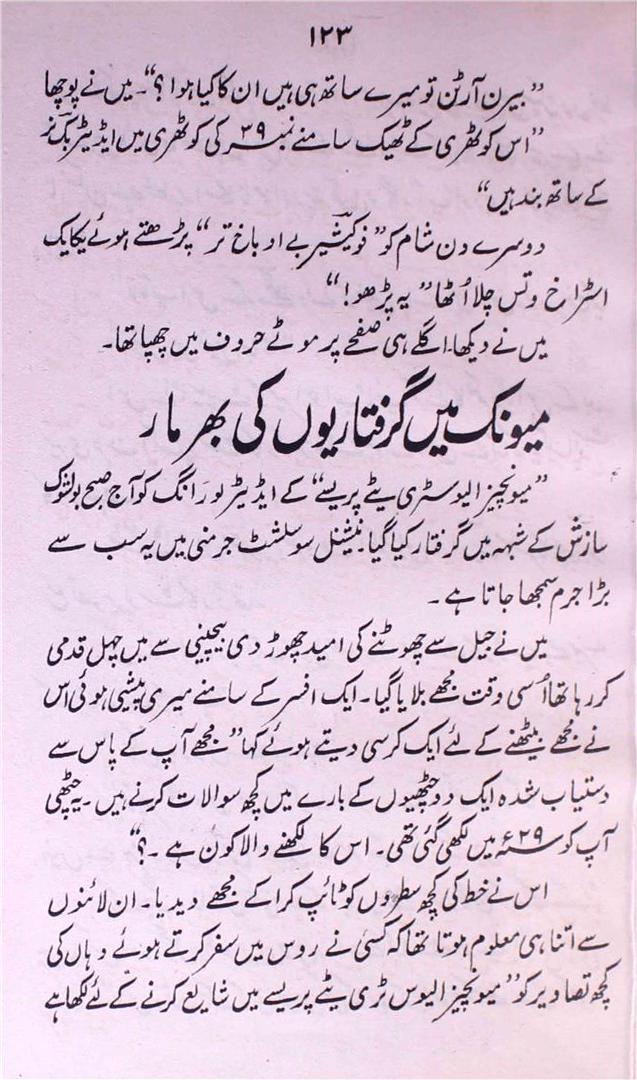 ۱۲۳
”بیرن آرٹن تو میرے ساتھ ہی ہیں ان کا کیا ہوا؟“۔ میں نے پوچھا
”اس کوٹھری کے ٹھیک سامنے نمبر ۳۹ کی کوٹھری میں ایڈیٹر بکنز
کے ساتھ بند ہیں“
دوسرے دن شام کو ”فوکیشیر بے او باخ تر“ پڑھتے ہوئے یکایک
اسٹراخ وتس چلا اُٹھا ”یہ پڑھو!“
میں نے دیکھا۔ اگلے ہی صفحے پر موٹے حروف میں چھپا تھا۔
میونک میں گرفتاریوں کی بھرمار
”میونچیز الیوسٹری یٹے پریسے“ کے ایڈیٹر لورانگ کو آج صبح بولشوک
سازش کے شبہہ میں گرفتار کیا گیا۔ نیشنل سوسلشٹ جرمنی میں یہ سب سے
بڑا جرم سمجھا جاتا ہے۔
میں نے جیل سے چھوٹنے کی امید چھوڑ دی بیچینی سے میں چہل قدمی
کر رہا تھا اُسی وقت مجھے بلایا گیا۔ ایک افسر کے سامنے میری پیشی ہوئی اس
نے مجھے بیٹھنے کے لئے ایک کرسی دیتے ہوئے کہا ”مجھے آپ کے پاس سے
دستیاب شدہ ایک دو چٹھیوں کے بارے میں کچھ سوالات کرنے ہیں۔ یہ چٹھی
آپ کو سنہ ۲۹ء میں لکھی گئی تھی۔ اس کا لکھنے والا کون ہے۔؟“
اس نے خط کی کچھ سطروں کو ٹائپ کرا کے مجھے دیدیا۔ ان لائنوں
سے اتنا ہی معلوم ہوتا تھا کہ کسی نے روس میں سفر کرتے ہوئے وہاں کی
کچھ تصاویر کو ”میونچیز الیوس ٹری یٹے پریسے میں شایع کرنے کے لئے لکھا ہے